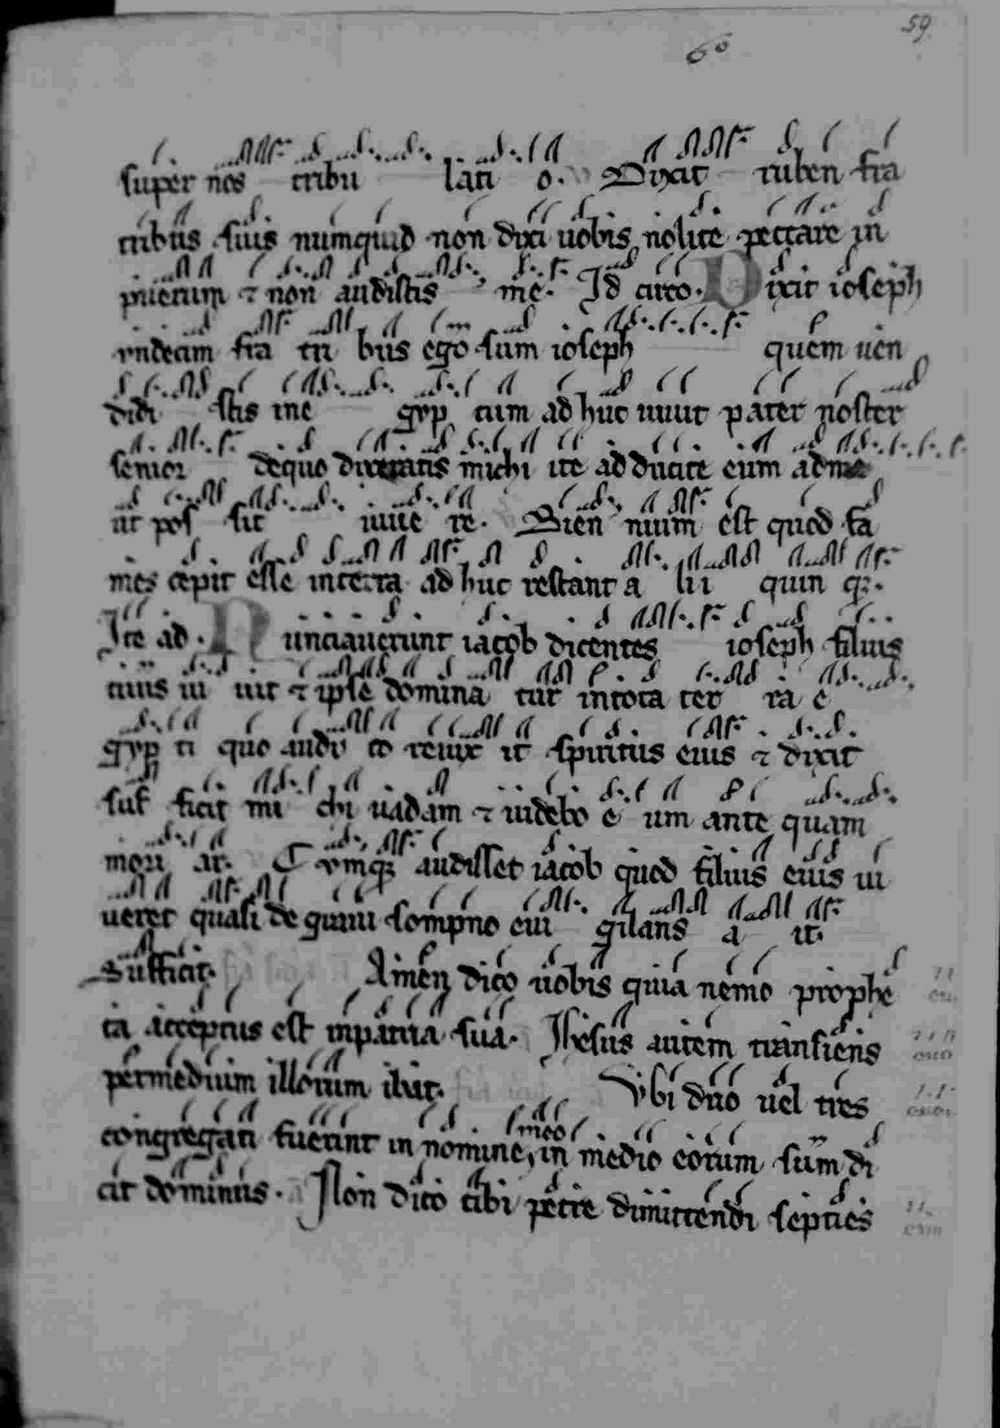 59
60
super nos tribu lati o. Dixit ruben fra
tribus suis numquid non dixi uobis nolite peccare in
puerum ⁊ non audistis me. Id circo. Dixit ioseph
vndecim fra tri bus ego sum ioseph quem uen
didi stis me gyp tum ad huc uiuit pater noster
senior dequo dixeratis michi ite ad ducite eum adme
ut pos sit uiue re. Bien nium est quod fa
mes cepit esse interra ad huc restant a lii quin q;.
Ite ad. Nunciauerunt iacob dicentes ioseph filius
tuus ui uit ⁊ ipse domina tur intota ter ra e
gyp ti quo audi to reuix it spiritus eius ⁊ dixit
suf ficit mi chi uadam ⁊ uidebo e um ante quam
mori ar. Cvmq; audisset iacob quod filius eius ui
ueret quasi de graui sompno eui gilans a it.
Sufficit. Amen dico uobis quia nemo prophe
ta acceptus est inpatria sua. Ihesus autem transiens
permedium illorum ibat. Vbi duo uel tres
congregati fuerint in nomine meo in medio eorum sum di
cit dominus. Non dico tibi petre dimittendi septies